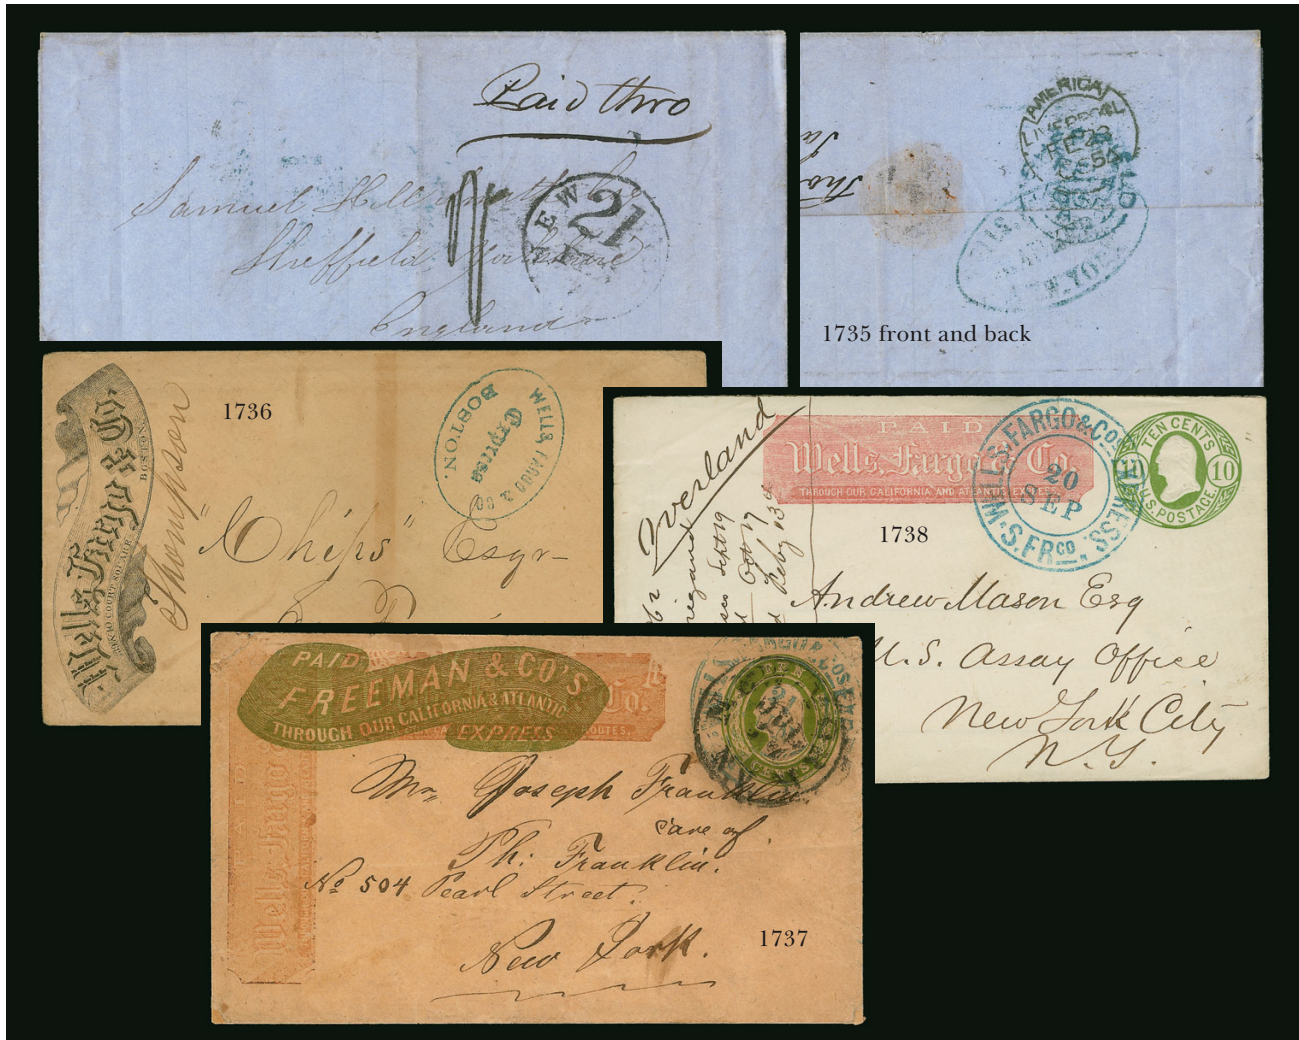 Paid thro
Samuel Hill
Sheffield Yorkshire
England
NEW
21
AMERICA
LIVERPOOL
NEW-YORK
1735 front and back
Wells, Fargo & Co.
BOSTON.
Thompson
1736
WELLS, FARGO & CO
Express
BOSTON.
"Chips" Esqr
pr Overland
PAID
Wells, Fargo & Co.
THROUGH OUR CALIFORNIA AND ATLANTIC EXPRESS
WELLS, FARGO & CO'S EXPRESS
20
SEP
S. FRCO.
TEN CENTS
10
10
U.S. POSTAGE.
1738
Andrew Mason Esq
U.S. Assay Office
New York City
N.Y.
PAID
FREEMAN & CO'S
THROUGH OUR CALIFORNIA & ATLANTIC
EXPRESS
Co.
PAID
Wells Fargo
CENTS
Mr. Joseph Franklin
Care of
Ph: Franklin.
No 504 Pearl Street.
New York.
1737